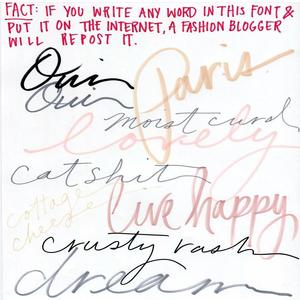 FACT: IF YOU WRITE ANY WORD IN THIS FONT &
PUT IT ON THE INTERNET, A FASHION BLOGGER
WILL REPOST IT.
Oui
Paris
Oui
moist curd
lovely
catshit
cottage
cheese
live happy
crusty rash
dream